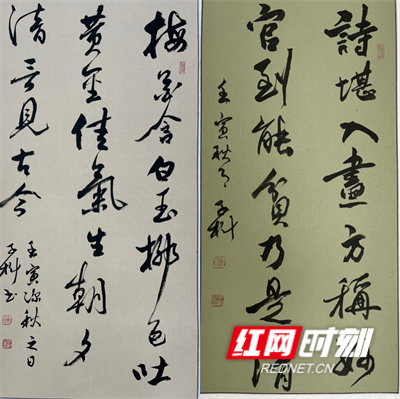 梅花含白玉柳色吐
黄金佳氣生朝夕
清言見古今
壬寅深秋之日
子科书
詩堪入畫方稱妙
官到能貧乃是清
壬寅秋月子科
红网时刻
REDNET.CN